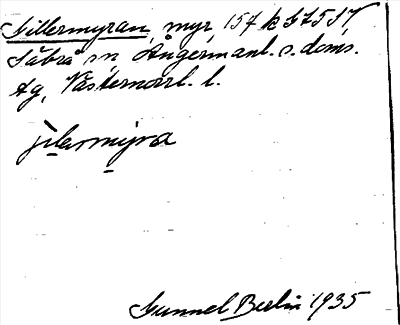 Gillermyran, myr, 154 k 5 75 SV
Säbrå sn, Ångermanl. s. doms.
tg, Västernorrl. l.
jilermyra
Gunnel Berlin 1935